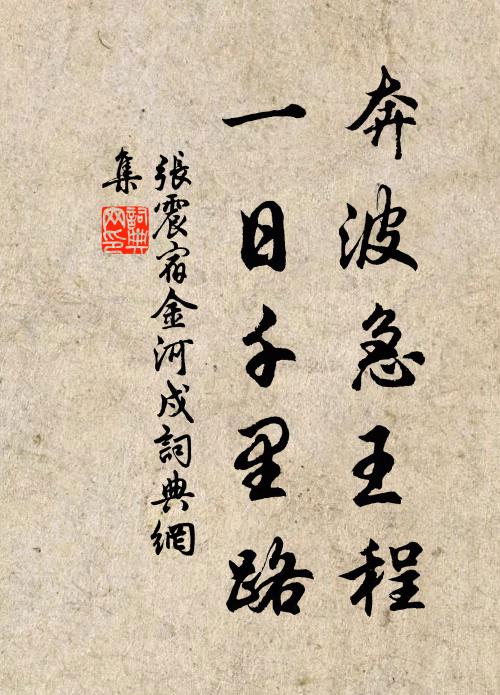 奔波急王程
一日千里路
張震宿金河戍詞典網
集
詞典
网印